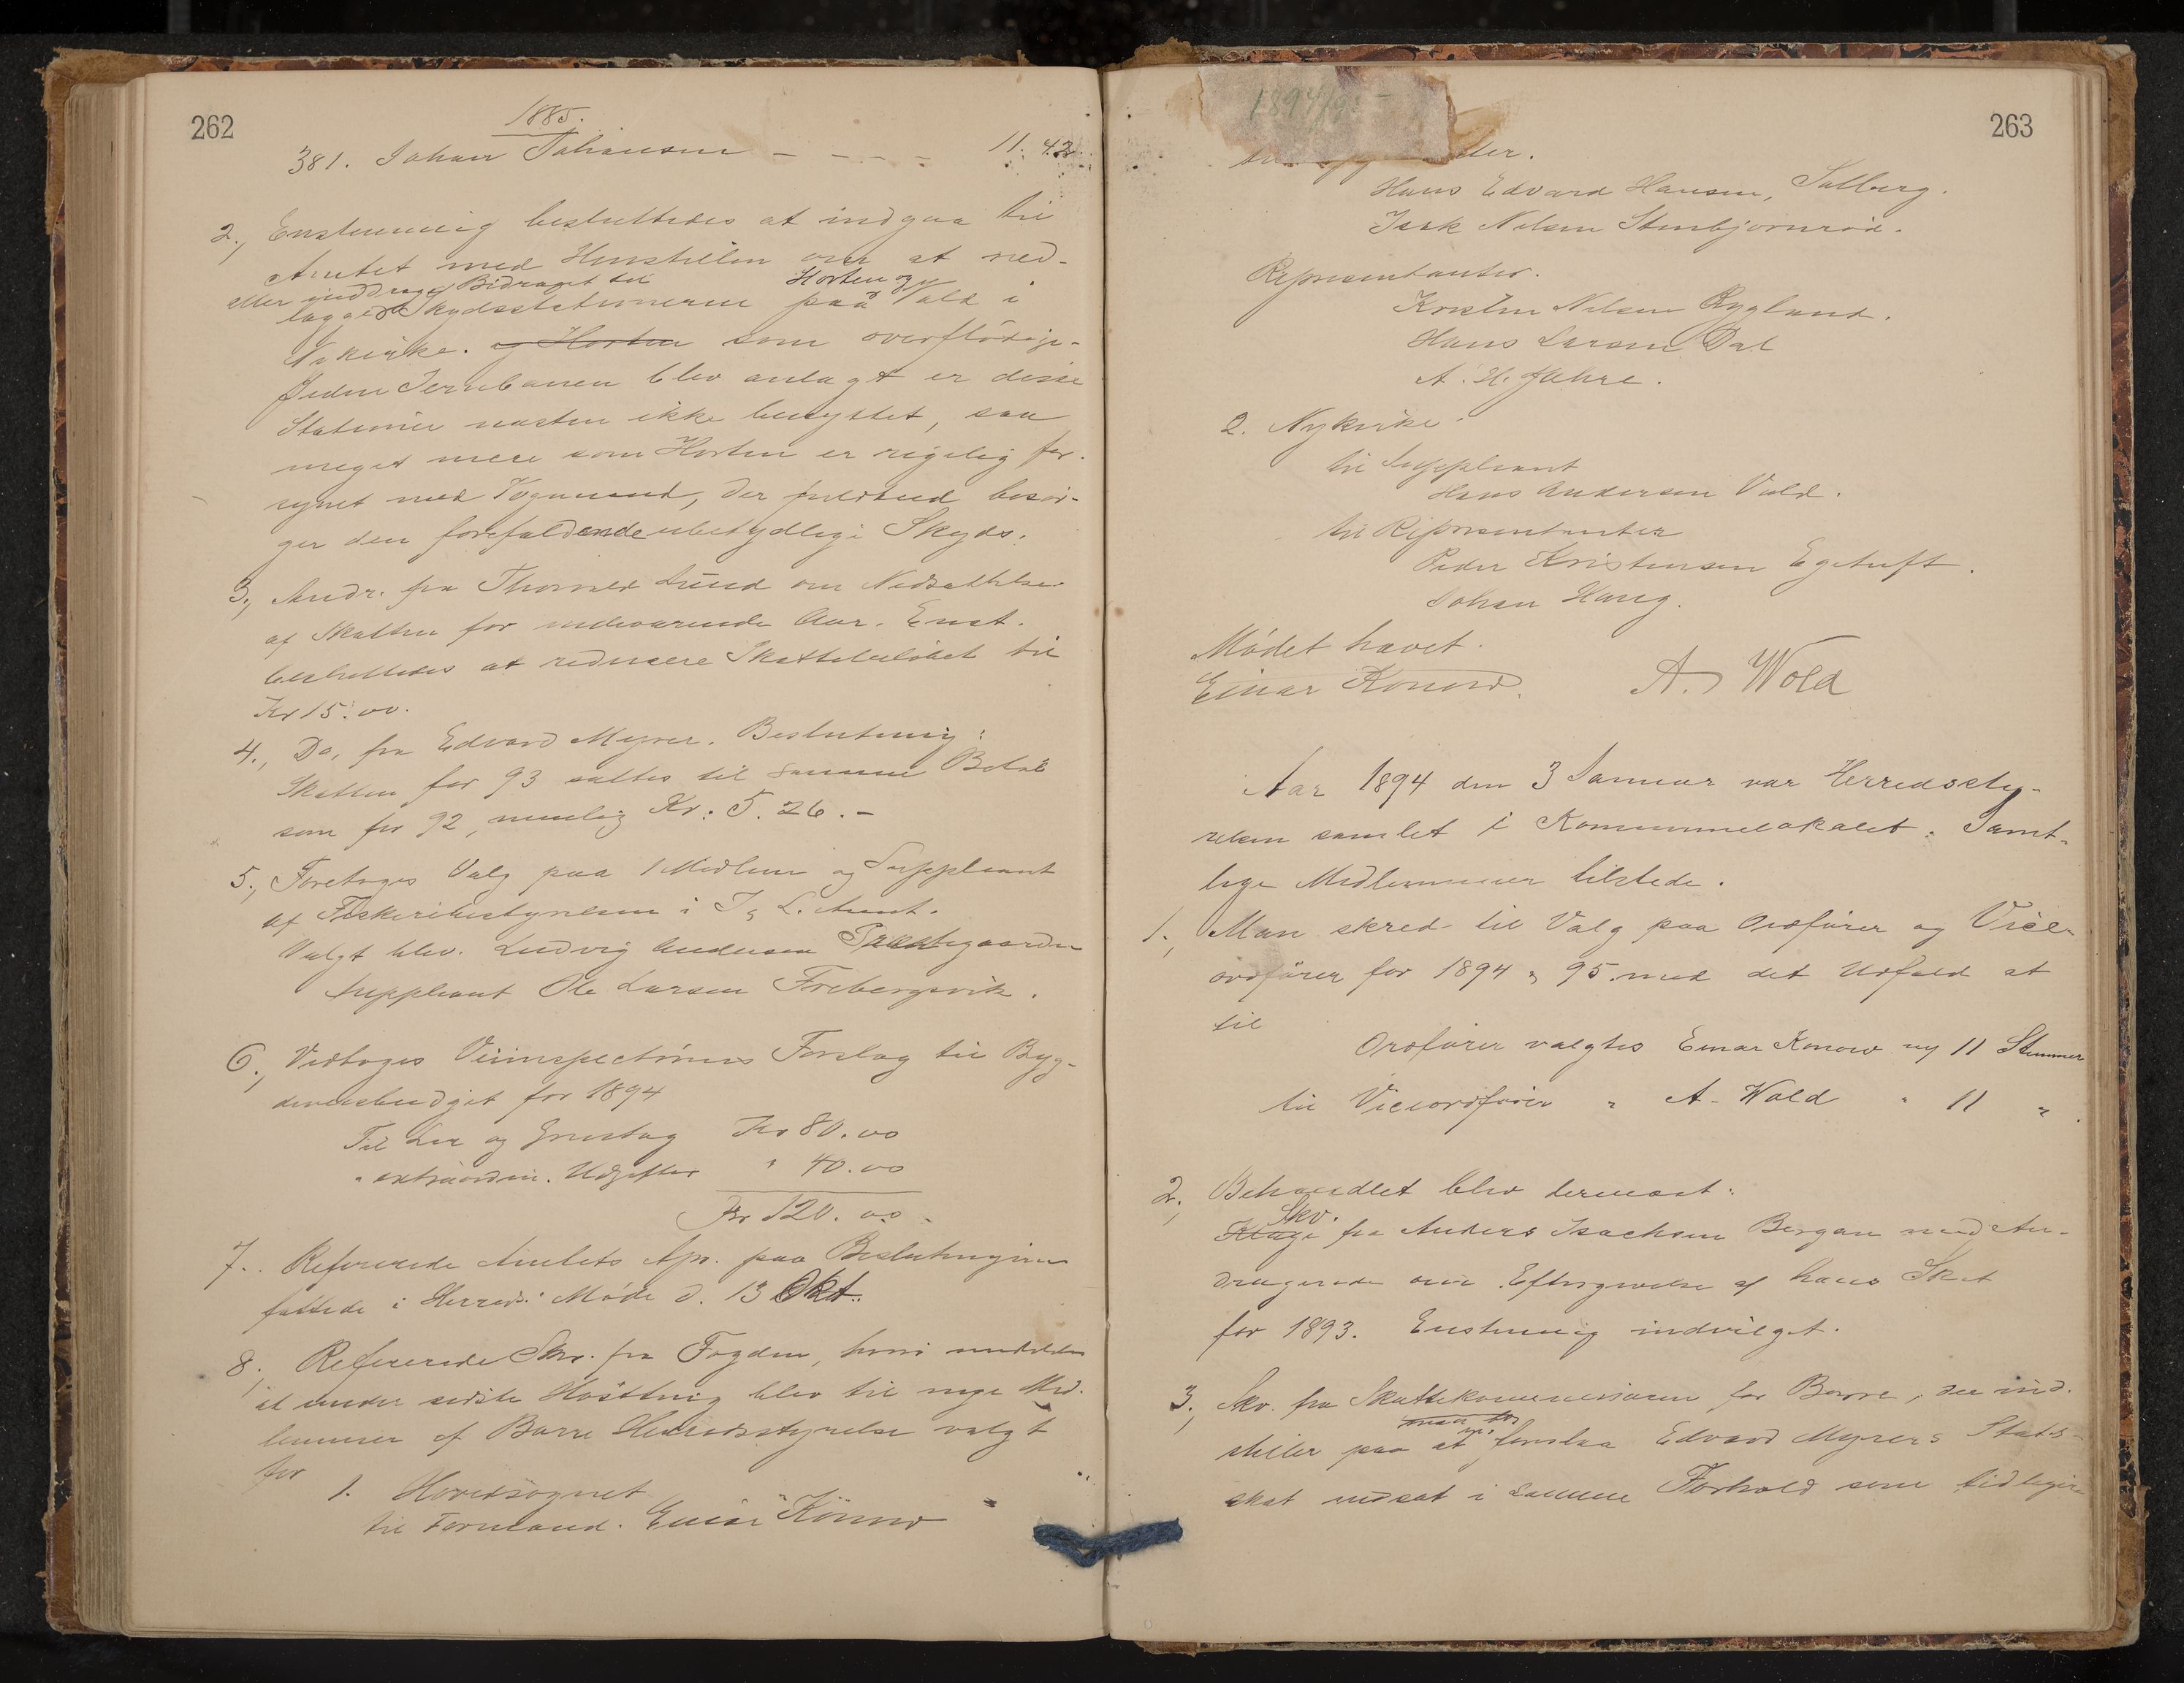 262
1885.
381. Johan Johansen - - - - - 11. 42
2., Enstemmig besluttedes at indgaa til
Amtet med Henstillen om at ned-
eller inddrage Bidraget til Horten og
lægge Skydsstationerne paa Vold i
Nykirke. og Horten som overflödige.
Siden Jernbanen blev anlagt er disse
Stationer næsten ikke benyttet, saa
meget mere som Horten er rigelig for-
synet med Vognmænd, der besör-
ger den forefaldende ubetydelige Skyds.
3., Andr. fra Thorvald Lund om Nedsættelse
af Skatten for indeværende Aar. Enst.
besluttedes at reducere Skattebelöbet til
Kr 15.00.
4., Do, fra Edvard Myrer. Beslutning:
Skatten for 93 sættes til samme Belöb
som for 92, nemlig Kr: 5.26.-
5., Foretoges Valg paa 1 Medlem og Suppleant
af Fiskeribestyrelsen i J. & L. Amt.
Valgt blev. Ludvig Andersen Præstegaarden
Suppleant Ole Larsen Frebergsvik.
6., Vedtoges Veiinspectörens Forslag til Byg-
deveisbudget for 1894
Til Ler og Grustag Kr 80.00
" extraordin. Udgifter " 40.00
Kr 120.00.
7. Refererede Amtets Apr. paa Beslutningerne
fattede i Herreds. Möde d. 13 Okt.
8., Refererede Skr. fra Fogden, hvori meddeles
at under sidste Hösttning blev til nye Med-
lemmer af Borre Herredsstyrelse valgt
for
1. Hovedsognet
til Formænd. Einar Konow
263
1894/9
Hans Edvard Hansen, Solberg.
Isak Nilsen Stenbjørnröd.
Repræsentanter.
Kristen Nilsen Rygland.
Hans Larsen Dal
A. H. Jahre.
2. Nykirke
til Suppleant
Hans Andersen Vold.
til Repræsentanter
Peder Kristensen Egetuft.
Johan Haug.
Mödet hævet.
Einar Konow. A. Wold
Aar 1894 den 3 Januar var Herredssty-
relsen samlet i Kommunelokalet. Samt-
lige Medlemmer tilstede.
1., Man skred til Valg paa Ordförer og Vice-
ordförer for 1894 & 95. med det Udfald at
til
Ordförer valgtes Einar Konow m/ 11 Stemmer
til Viceordförer " A. Wold " 11 ".
2., Behandlet blev dernæst:
Skr.
Klage fra Anders Isachsen Bergan med An-
dragende om Eftergivelse af hans Skat
for 1893. Enstemmig indvilget.
3., Skr. fra Skattekommissionen for Borre, der ind-
stiller paa at foreslaa Edvard Myrers Stats-
skat nedsat i samme Forhold som tidligere